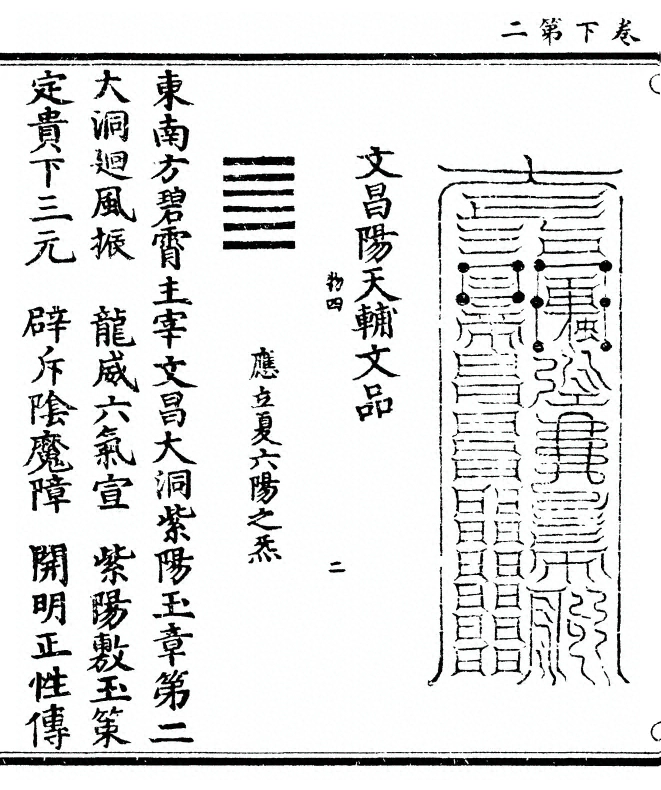 卷下第二
文昌陽天輔文品
物四
二
應立夏六陽之炁
東南方碧霄主宰文昌大洞紫陽玉章第二
大洞迴風振　龍威六氣宣　紫陽敷玉策
定貴下三元　辟斥陰魔障　開明正性傳